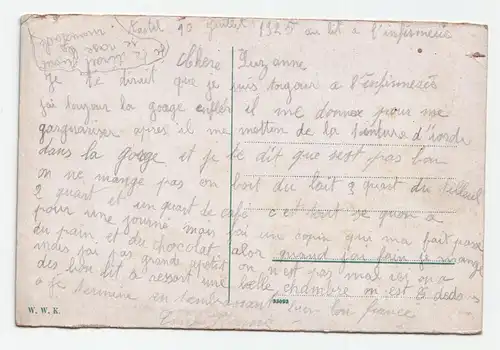 Kastel 90 Juillet 1925 au lit a l'infirmerie
Chere Suzanne
Je te dirait que je suis toujour a l'enfirmerie
jai toujour la goage enfleh il me donnex pour me
gargnariser apres il me metten de la teinture d'iorde
dans la gorge et je te dit que sest pas bon
on ne mange pas on boit du lait 3 quart du tilleul
2 quart et un quart de café c'est tout se quon a
pour une journé mais jai un copin qui ma fait passé
du pain et du chocolat alor quand jai faim je mange
mais jai pas grande apetit on n'est pas mal ici on a
des bon lit a ressort une belle chambre on est 25 dedans
je termine en t'embrassant ton bon france
W. W. K.